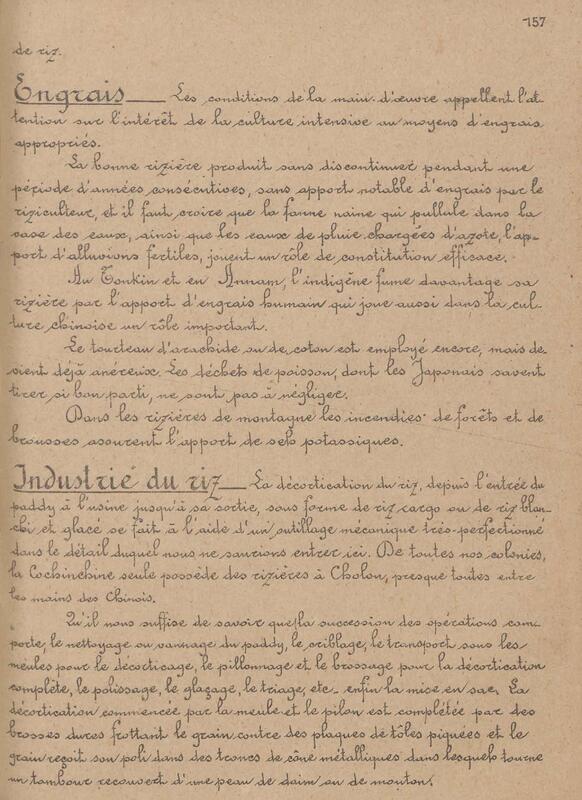 157
de riz.
Engrais — Les conditions de la main-d'œuvre appellent l'at-
tention sur l'intérêt de la culture intensive au moyens d'engrais
appropriés.
La bonne rizière produit sans discontinuer pendant une
période d'années consécutives, sans apport notable d'engrais par le
riziculteur, et il faut croire que la faune naine qui pullule dans la
vase des eaux, ainsi que les eaux de pluie chargées d'azote, l'ap-
port d'alluvions fertiles, jouent un rôle de constitution efficace.
Au Tonkin et en Annam, l'indigène fume davantage sa
rizière par l'apport d'engrais humain qui joue aussi dans la cul-
ture chinoise un rôle important.
Le tourteau d'arachide ou de coton est employé encore, mais de-
vient déjà onéreux. Les déchets de poisson, dont les Japonais savent
tirer si bon parti, ne sont pas à négliger.
Dans les rizières de montagne les incendies de forêts et de
brousses assurent l'apport de sels potassiques.
Industrie du riz — La décortication du riz, depuis l'entrée du
paddy à l'usine jusqu'à sa sortie, sous forme de riz cargo ou de riz blan-
chi et glacé se fait à l'aide d'un outillage mécanique très-perfectionné
dans le détail duquel nous ne saurions entrer ici. De toutes nos colonies,
la Cochinchine seule possède des rizières à Cholon, presque toutes entre
les mains des Chinois.
Qu'il nous suffise de savoir que la succession des opérations com-
porte, le nettoyage ou vannage du paddy, le criblage, le transport sous les
meules pour le décorticage, le pillonnage et le brossage pour la décortication
complète, le polissage, le glaçage, le triage, etc.. enfin la mise en sac. La
décortication commencée par la meule et le pilon est complétée par des
brosses dures frottant le grain contre des plaques de tôles piquées et le
grain reçoit son poli dans des troncs de cône métalliques dans lesquels tourne
un tambour recouvert d'une peau de daim ou de mouton.